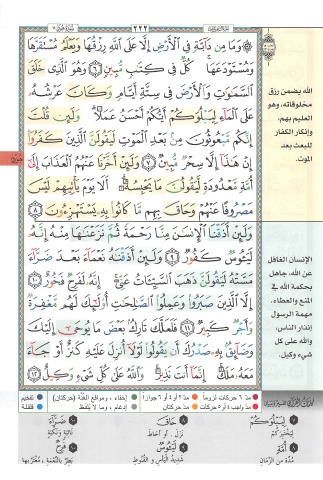 ٢٢٢
وَمَا مِن دَآبَّةٍ فِي ٱلْأَرْضِ إِلَّا عَلَى ٱللَّهِ رِزْقُهَا وَيَعْلَمُ مُسْتَقَرَّهَا
وَمُسْتَوْدَعَهَا ۚ كُلٌّ فِي كِتَٰبٍ مُّبِينٍ ٦ وَهُوَ ٱلَّذِي خَلَقَ
ٱلسَّمَٰوَٰتِ وَٱلْأَرْضَ فِي سِتَّةِ أَيَّامٍ وَكَانَ عَرْشُهُۥ
عَلَى ٱلْمَآءِ لِيَبْلُوَكُمْ أَيُّكُمْ أَحْسَنُ عَمَلًا ۗ وَلَئِن قُلْتَ
إِنَّكُم مَّبْعُوثُونَ مِنۢ بَعْدِ ٱلْمَوْتِ لَيَقُولَنَّ ٱلَّذِينَ كَفَرُوٓا۟
إِنْ هَٰذَآ إِلَّا سِحْرٌ مُّبِينٌ ٧ وَلَئِنْ أَخَّرْنَا عَنْهُمُ ٱلْعَذَابَ إِلَىٰٓ
أُمَّةٍ مَّعْدُودَةٍ لَّيَقُولُنَّ مَا يَحْبِسُهُۥٓ ۗ أَلَا يَوْمَ يَأْتِيهِمْ لَيْسَ
مَصْرُوفًا عَنْهُمْ وَحَاقَ بِهِم مَّا كَانُوا۟ بِهِۦ يَسْتَهْزِءُونَ ٨
وَلَئِنْ أَذَقْنَا ٱلْإِنسَٰنَ مِنَّا رَحْمَةً ثُمَّ نَزَعْنَٰهَا مِنْهُ إِنَّهُۥ
لَيَـُٔوسٌ كَفُورٌ ٩ وَلَئِنْ أَذَقْنَٰهُ نَعْمَآءَ بَعْدَ ضَرَّآءَ
مَسَّتْهُ لَيَقُولَنَّ ذَهَبَ ٱلسَّيِّـَٔاتُ عَنِّيٓ ۚ إِنَّهُۥ لَفَرِحٌ فَخُورٌ ١٠
إِلَّا ٱلَّذِينَ صَبَرُوا۟ وَعَمِلُوا۟ ٱلصَّٰلِحَٰتِ أُو۟لَٰٓئِكَ لَهُم مَّغْفِرَةٌ
وَأَجْرٌ كَبِيرٌ ١١ فَلَعَلَّكَ تَارِكٌۢ بَعْضَ مَا يُوحَىٰٓ إِلَيْكَ
وَضَآئِقٌۢ بِهِۦ صَدْرُكَ أَن يَقُولُوا۟ لَوْلَآ أُنزِلَ عَلَيْهِ كَنزٌ أَوْ جَآءَ
مَعَهُۥ مَلَكٌ ۚ إِنَّمَآ أَنتَ نَذِيرٌ ۚ وَٱللَّهُ عَلَىٰ كُلِّ شَيْءٍ وَكِيلٌ ١٢
الله يضمن رزق
مخلوقاته، وهو
العليم بهم،
وإنكار الكفار
للبعث بعد
الموت.
الإنسان الغافل
عن الله، جاهل
بحكمة الله في
المنع والعطاء.
مهمة الرسول
إنذار الناس،
والله على كل
شيء وكيل.
مدّ ٦ حركات لزوماً
مدّ ٢ أو ٤ أو ٦ جوازاً
إخفاء، ومواقع الغُنَّة (حركتان)
تفخيم
مدّ واجب ٤ أو ٥ حركات
مدّ حركتان
إدغام، وما لا يُلفَظ
قلقلة
لِيَبْلُوَكُمْ
لِيَخْتَبِرَكُم
أُمَّةٍ
مُدَّة من الزَّمان
حَاقَ
نَزَلَ. أو أحَاطَ
لَيَـُٔوسٌ
شديد اليَأْسِ والقُنُوط
ضَرَّآءَ
نائِبَة ونَكْبَة
لَفَرِحٌ